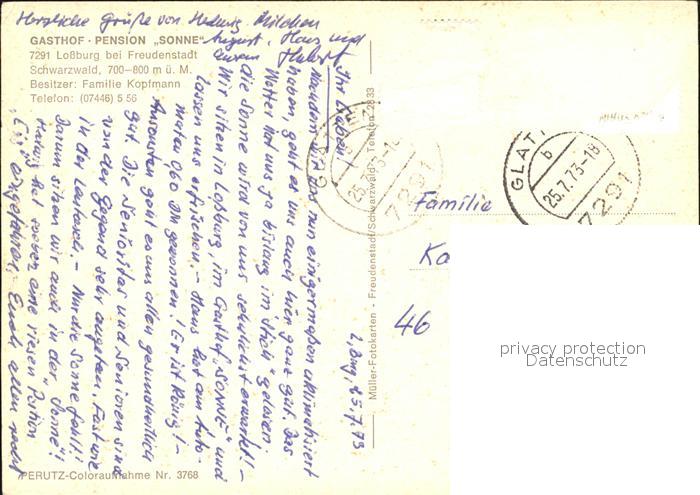 GASTHOF · PENSION „SONNE"
7291 Loßburg bei Freudenstadt
Schwarzwald, 700–800 m ü. M.
Besitzer: Familie Kopfmann
Telefon: (07446) 5 56
Müller-Fotokarten - Freudenstadt/Schwarzwald - Telefon 2833
PERUTZ-Coloraufnahme Nr. 3768
25.7.73
Ihr Lieben!
Nachdem wir uns nun einigermaßen akklimatisiert
haben, geht es uns auch hier ganz gut. Das
Wetter hat uns ja bislang im Stich gelassen
die Sonne wird von uns sehnlichst erwartet! –
Wir sitzen in Loßburg, im Gasthof „SONNE" und
lassen uns erfrischen. – Hans hat am Auto-
maten 060 DM gewonnen! Er ist König! –
Ansonsten geht es uns allen gesundheitlich
gut. Die Senioritas und Senioren sind
von der Gegend sehr angetan. Fast wie
in der – Nur die Sonne fehlt!
Darum sitzen wir auch in der „Sonne"!
hat soeben eine riesen Portion
Eis eingefahren. Euch allen recht
Herzliche Grüße von Hedwig
August, Hans und
Familie
Ka
46
GLATT
b
25.7.73-18
7291
25.7.73-18
7291
privacy protection
Datenschutz